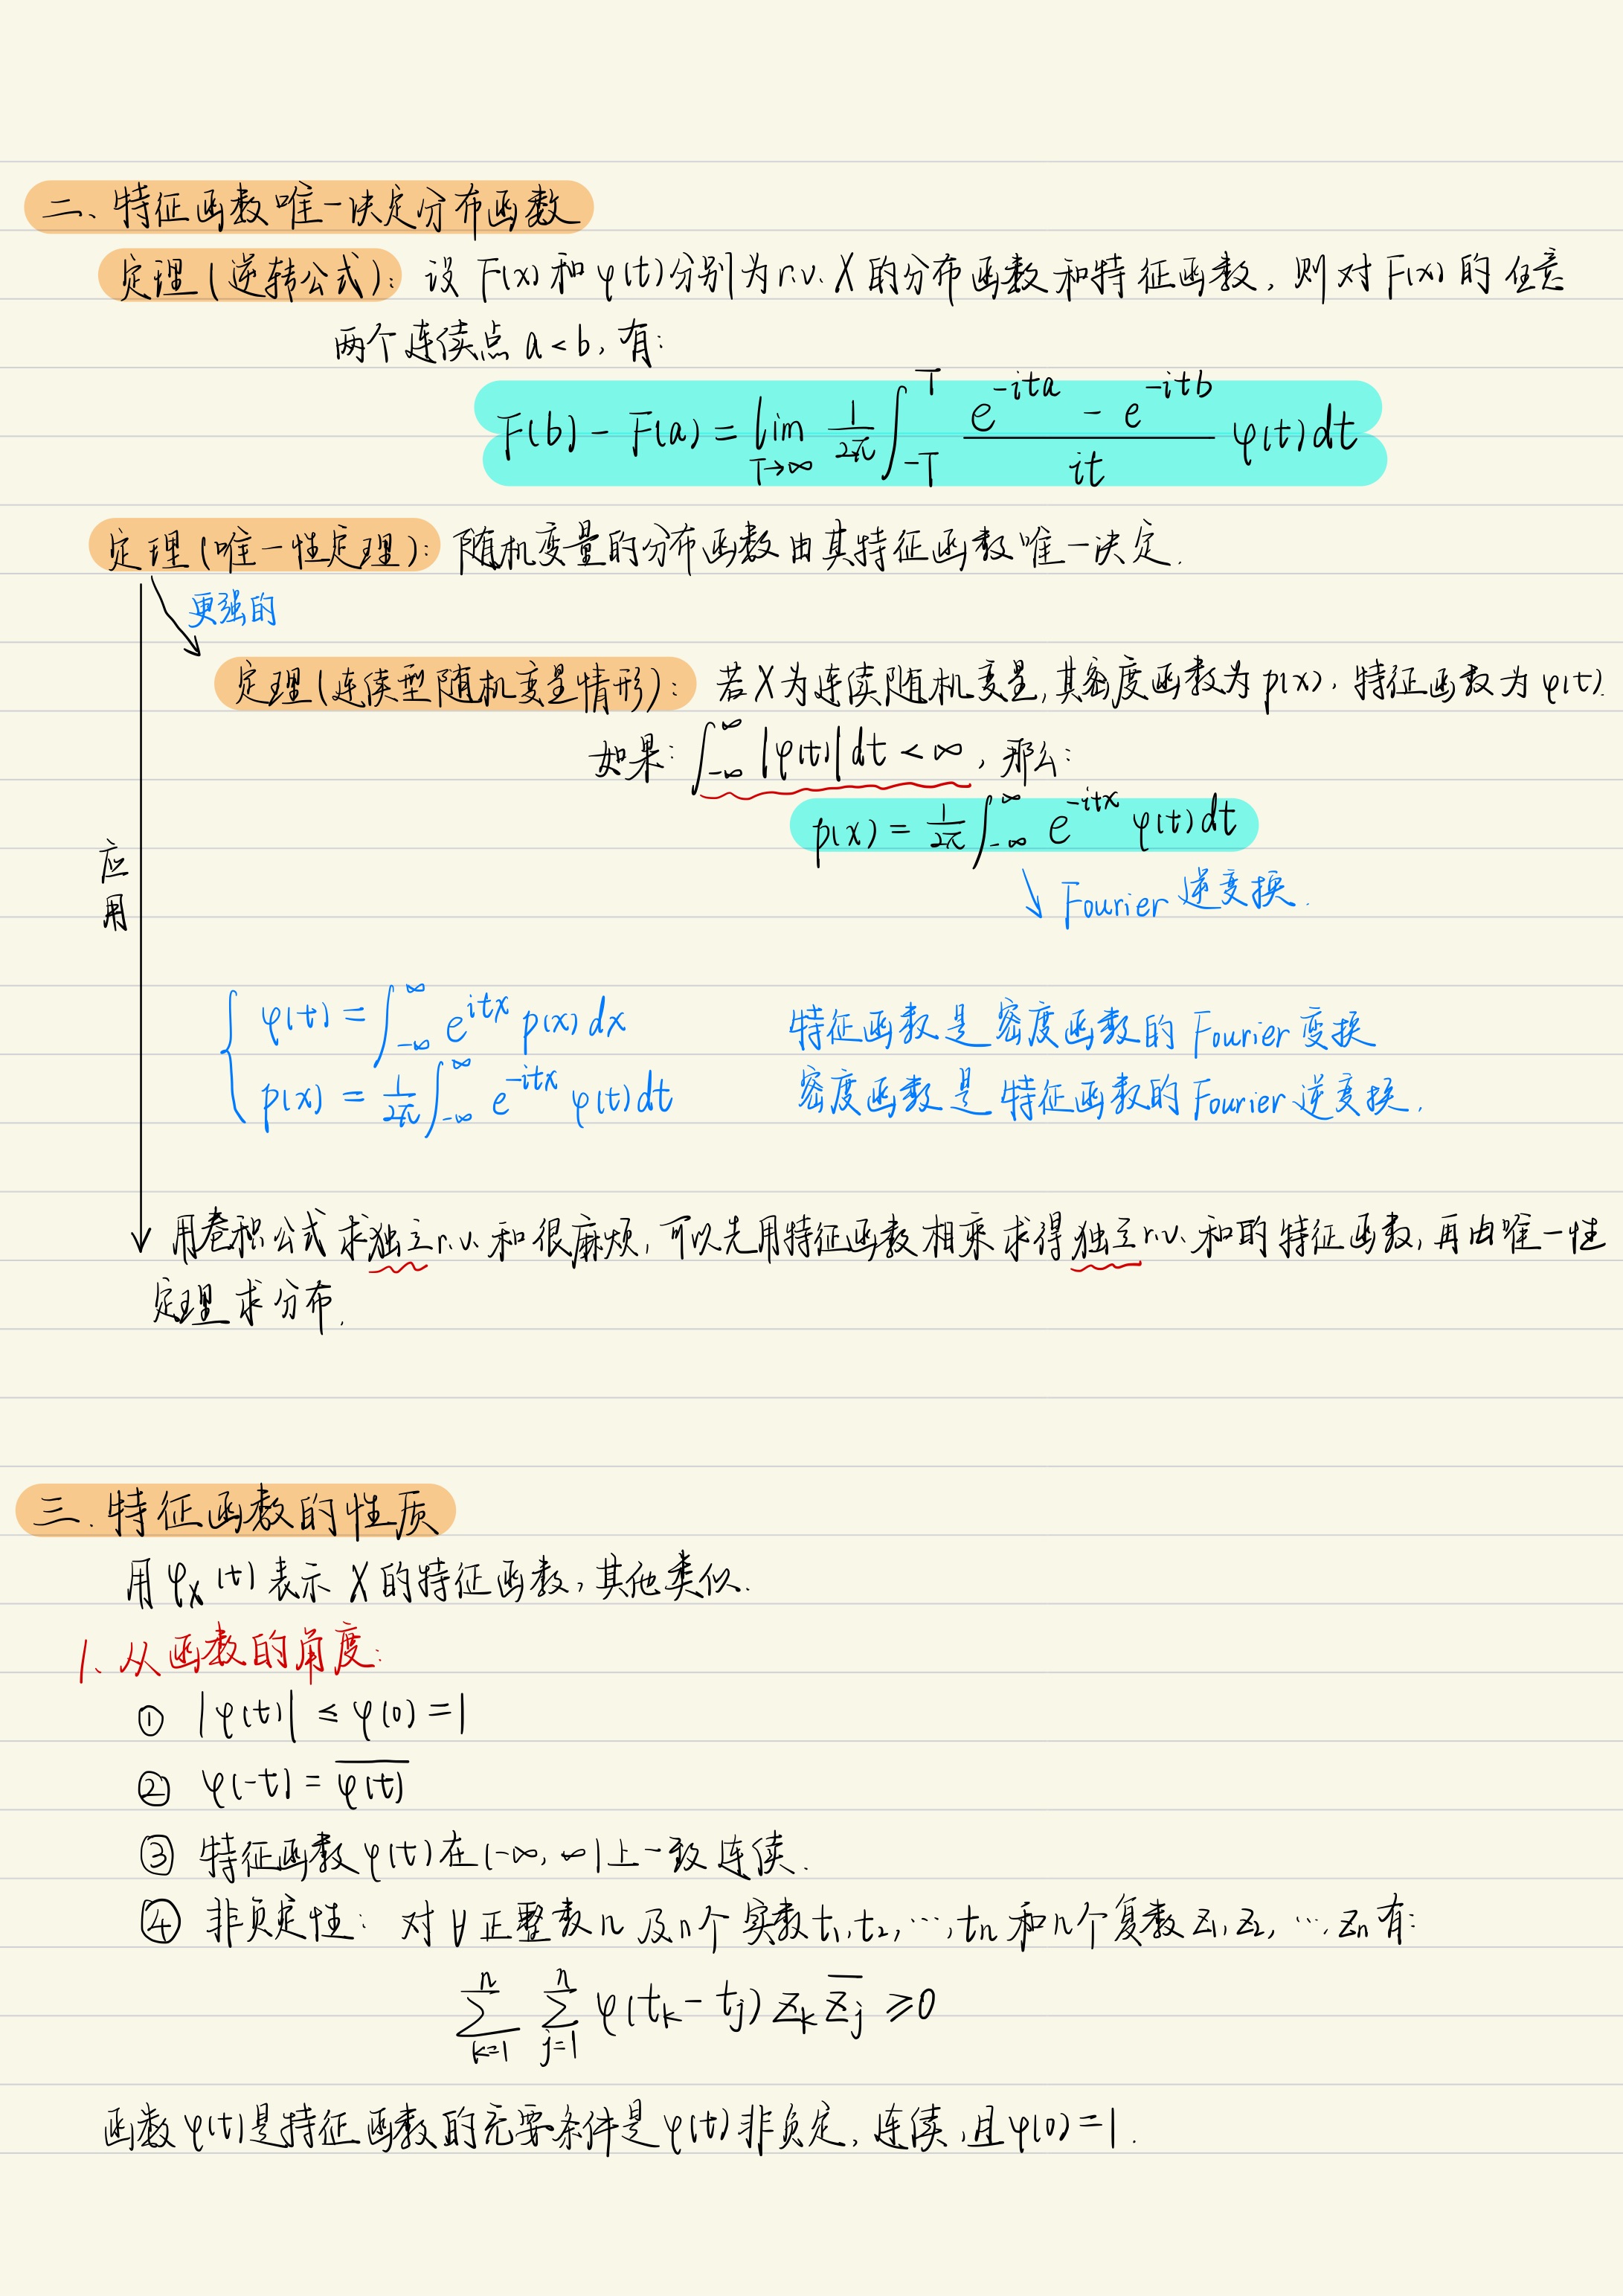 二、特征函数唯一决定分布函数
定理(逆转公式): 设 F(x) 和 φ(t) 分别为 r.v. X 的分布函数和特征函数, 则对 F(x) 的任意
两个连续点 a < b, 有:
F(b) - F(a) = lim_{T→∞} \frac{1}{2π} ∫_{-T}^{T} \frac{e^{-ita} - e^{-itb}}{it} φ(t) dt
定理(唯一性定理): 随机变量的分布函数由其特征函数唯一决定.
更强的
定理(连续型随机变量情形): 若X为连续随机变量, 其密度函数为 p(x), 特征函数为 φ(t).
如果: ∫_{-∞}^{∞} |φ(t)| dt < ∞, 那么:
p(x) = \frac{1}{2π} ∫_{-∞}^{∞} e^{-itx} φ(t) dt
应用
↘ Fourier 逆变换.
φ(t) = ∫_{-∞}^{∞} e^{itx} p(x) dx 特征函数是密度函数的 Fourier 变换
p(x) = \frac{1}{2π} ∫_{-∞}^{∞} e^{-itx} φ(t) dt 密度函数是特征函数的 Fourier 逆变换.
用卷积公式求独立 r.v. 和很麻烦, 可以先用特征函数相乘求得独立 r.v. 和的特征函数, 再由唯一性
定理求分布.
三. 特征函数的性质
用 φ_X(t) 表示 X 的特征函数, 其他类似.
1、从函数的角度:
① |φ(t)| ≤ φ(0) = 1
② φ(-t) = \overline{φ(t)}
③ 特征函数 φ(t) 在 (-∞, ∞) 上一致连续.
④ 非负定性: 对 ∀ 正整数 n 及 n 个实数 t_1, t_2, ⋯, t_n 和 n 个复数 z_1, z_2, ⋯, z_n 有:
∑_{k=1}^{n} ∑_{j=1}^{n} φ(t_k - t_j) z_k \overline{z_j} ≥ 0
函数 φ(t) 是特征函数的充要条件是 φ(t) 非负定, 连续, 且 φ(0) = 1.